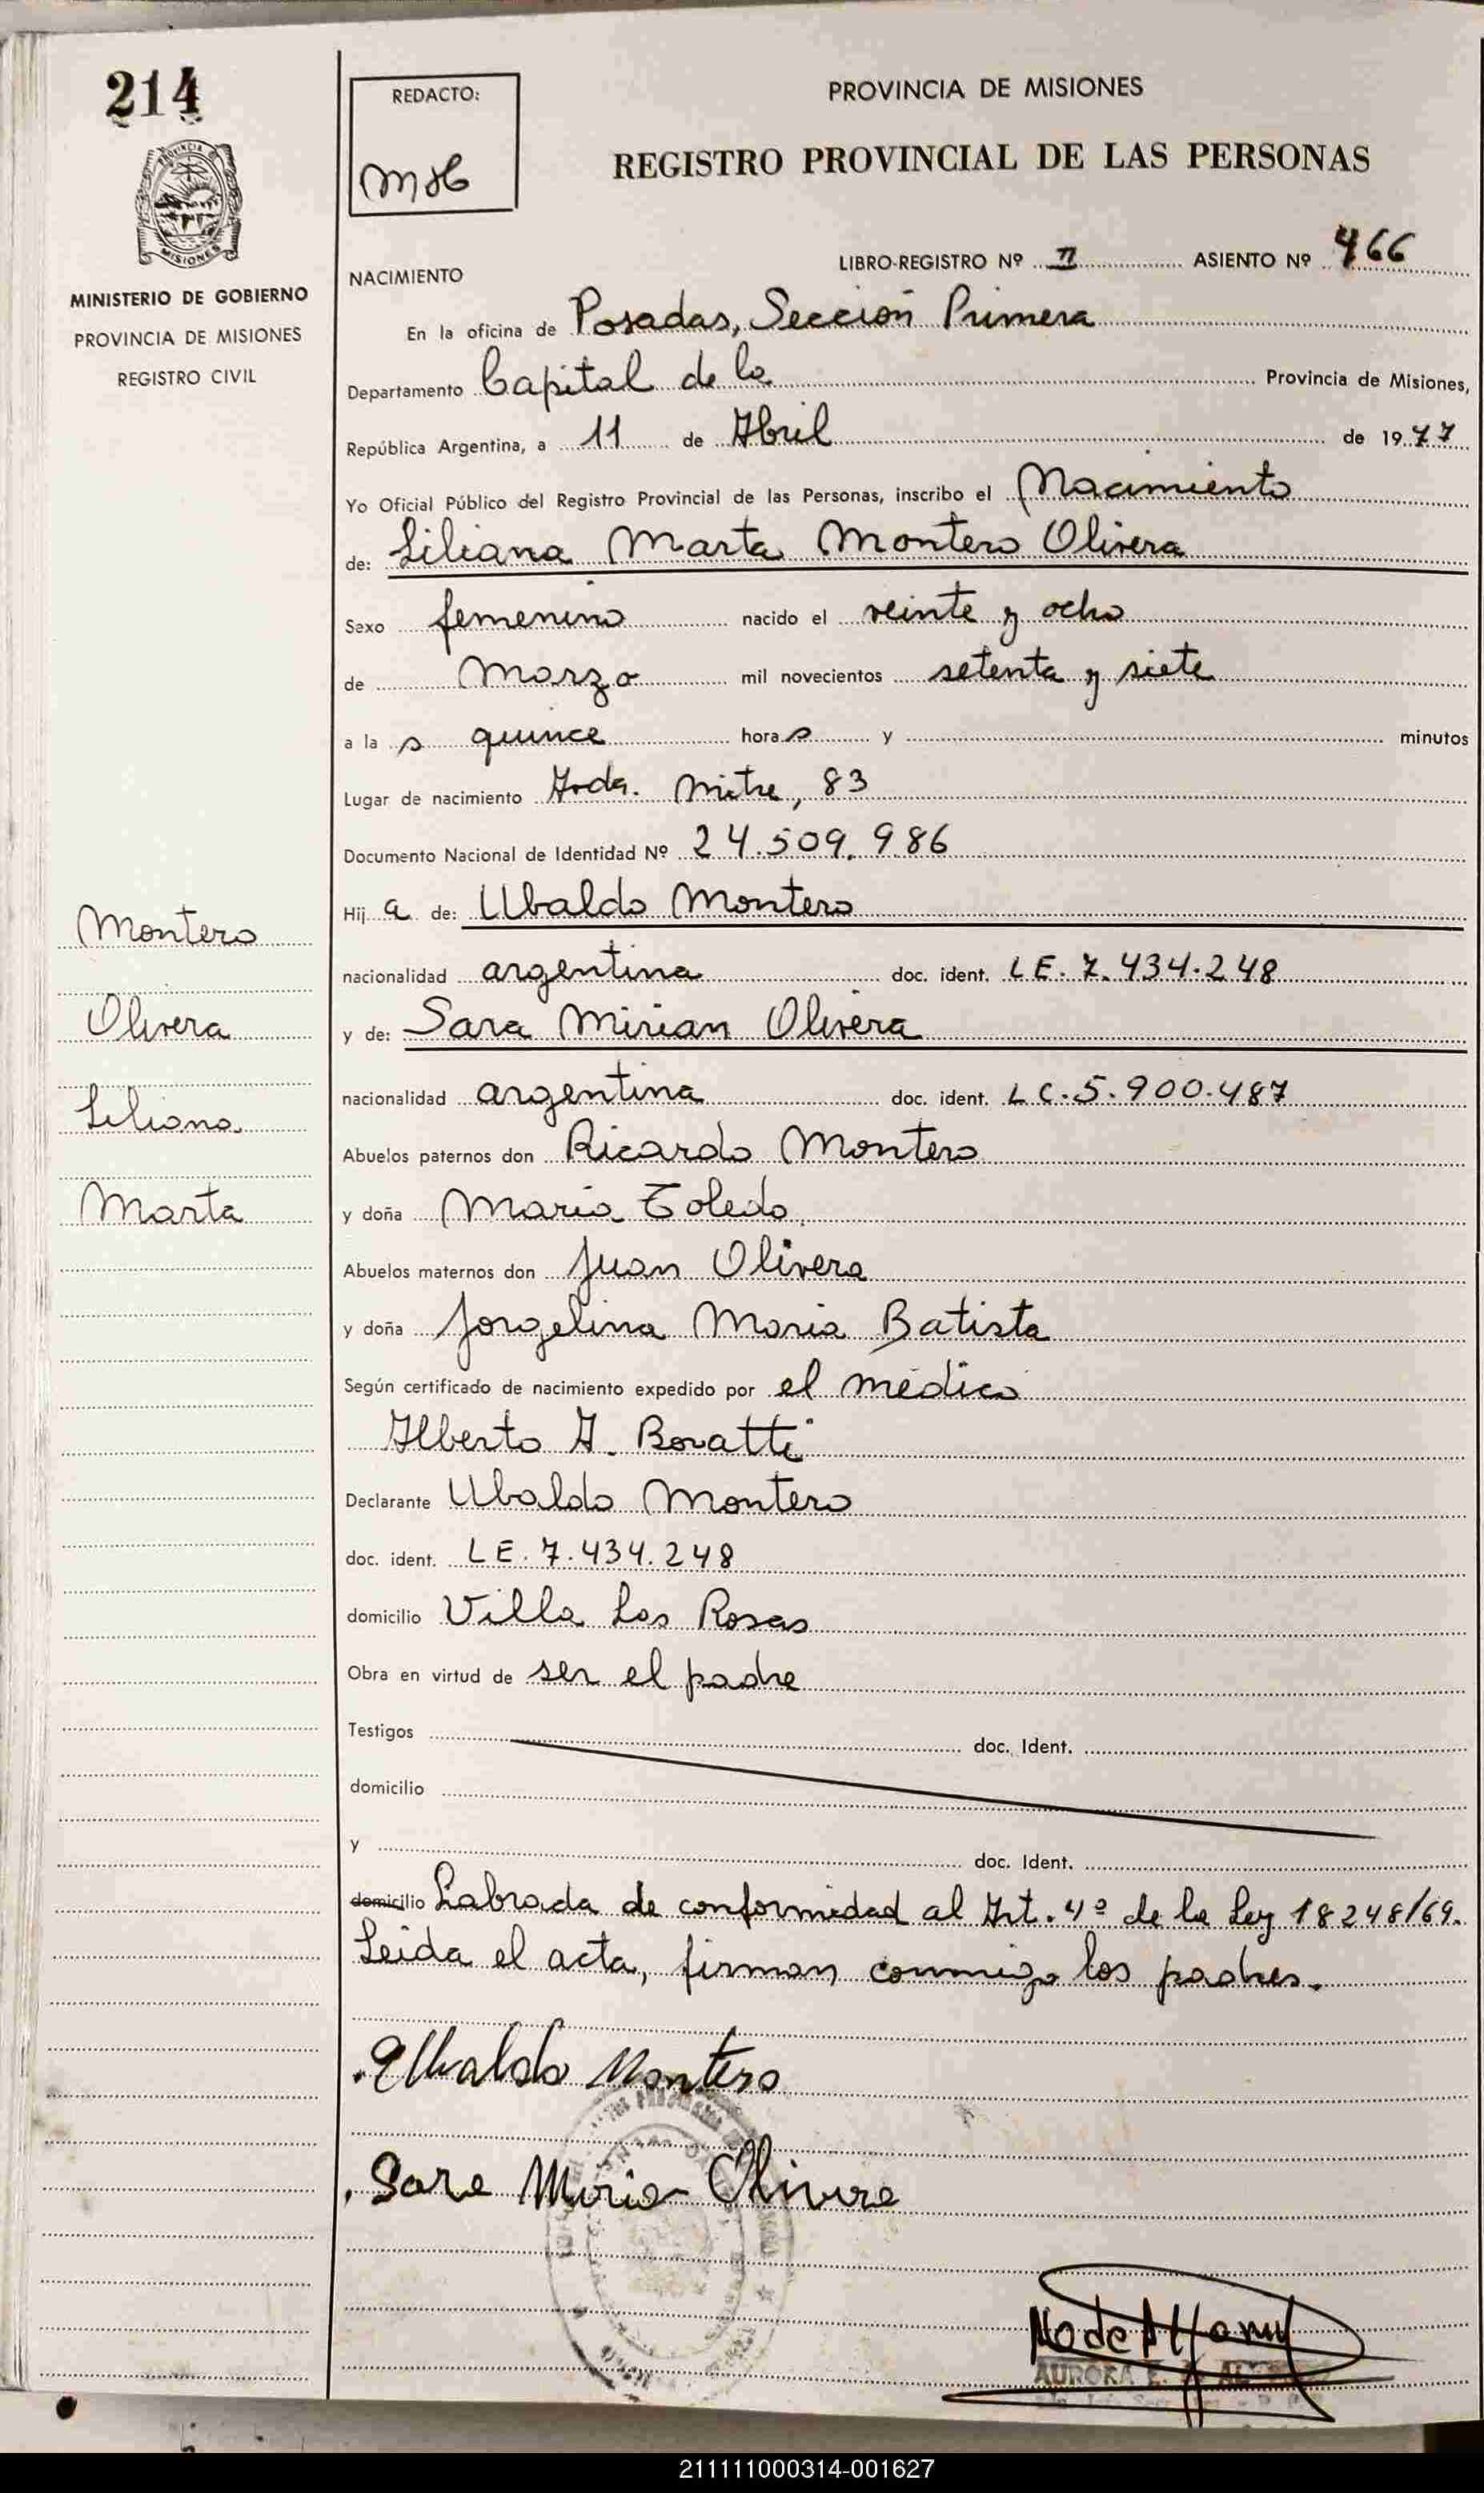 214
MINISTERIO DE GOBIERNO
PROVINCIA DE MISIONES
REGISTRO CIVIL
Montero
Olivera
Liliana
Marta
REDACTO:
PROVINCIA DE MISIONES
REGISTRO PROVINCIAL DE LAS PERSONAS
NACIMIENTO
LIBRO-REGISTRO Nº II ASIENTO Nº 466
En la oficina de Posadas, Sección Primera
Departamento Capital de la Provincia de Misiones,
República Argentina, a 11 de Abril de 1977
Yo Oficial Público del Registro Provincial de las Personas, inscribo el Nacimiento
de: Liliana Marta Montero Olivera
Sexo femenino nacido el veinte y ocho
de marzo mil novecientos setenta y siete
a la s quince hora s y minutos
Lugar de nacimiento Avda. Mitre, 83
Documento Nacional de Identidad Nº 24.509.986
Hij a de: Ubaldo Montero
nacionalidad argentina doc. ident. LE. 7.434.248
y de: Sara Mirian Olivera
nacionalidad argentina doc. ident. LC. 5.900.487
Abuelos paternos don Ricardo Montero
y doña Maria Toledo
Abuelos maternos don Juan Olivera
y doña Jorgelina Maria Batista
Según certificado de nacimiento expedido por el médico
Alberto A. Bovatti
Declarante Ubaldo Montero
doc. ident. LE. 7.434.248
domicilio Villa Las Rosas
Obra en virtud de ser el padre
Testigos doc. Ident.
domicilio
y doc. Ident.
domicilio Labrada de conformidad al Art. 4º de la Ley 18248/69.
Leida el acta, firman conmigo los padres.
Ubaldo Montero
Sara Mirian Olivera
AURORA E.
211111000314-001627